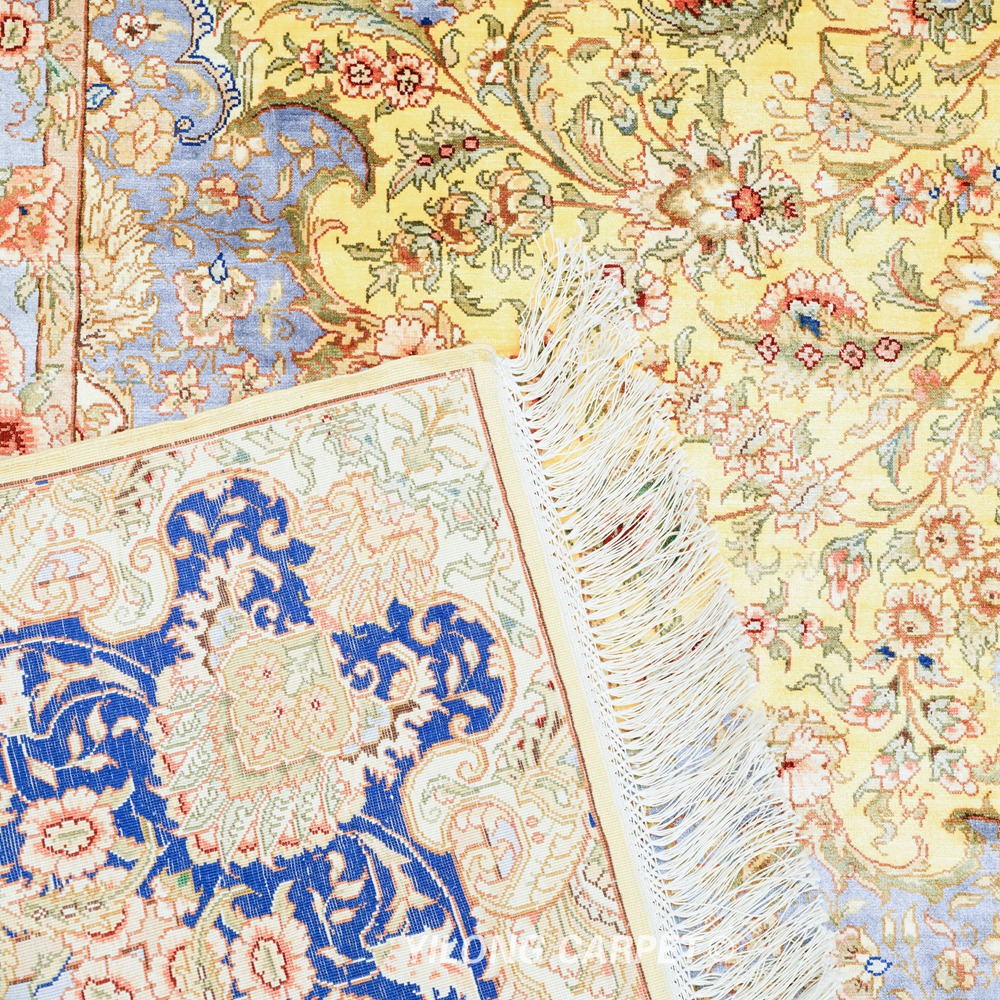 YILONG CARPET